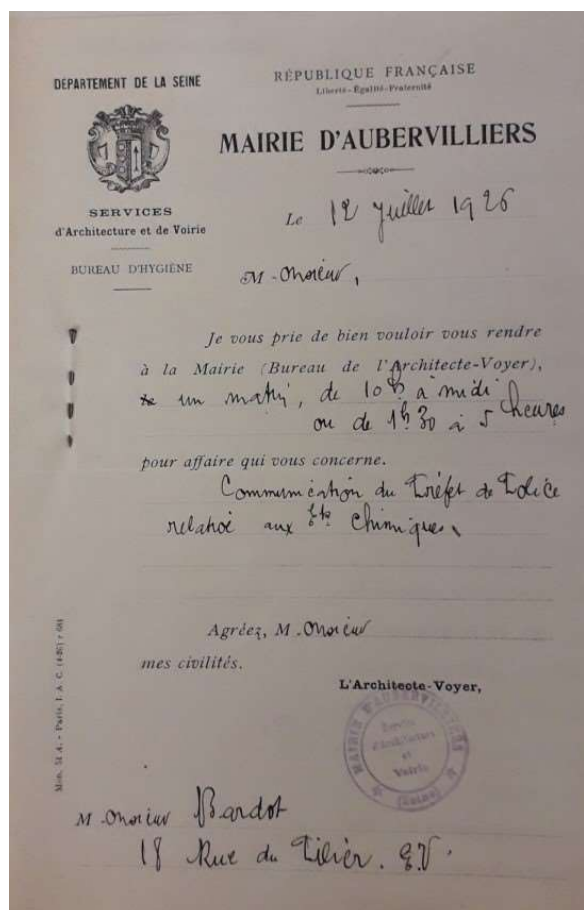 DÉPARTEMENT DE LA SEINE
RÉPUBLIQUE FRANÇAISE
Liberté-Égalité-Fraternité
MAIRIE D'AUBERVILLIERS
SERVICES
d'Architecture et de Voirie
BUREAU D'HYGIÈNE
Le 12 Juillet 1926
M-onsieur,
Je vous prie de bien vouloir vous rendre
à la Mairie (Bureau de l'Architecte-Voyer),
un matin, de 10h à midi
ou de 1h30 à 5 heures
pour affaire qui vous concerne.
Communication du Préfet de Police
relative aux Ets Chimiques
Agréez, M-onsieur
mes civilités.
L'Architecte-Voyer,
MAIRIE D'AUBERVILLIERS
Service
d'Architecture
et
Voirie
(Seine)
M-onsieur Bardot
18 Rue du Tilier. E.V.
Mon. 51 A. - Paris, I. A. C.